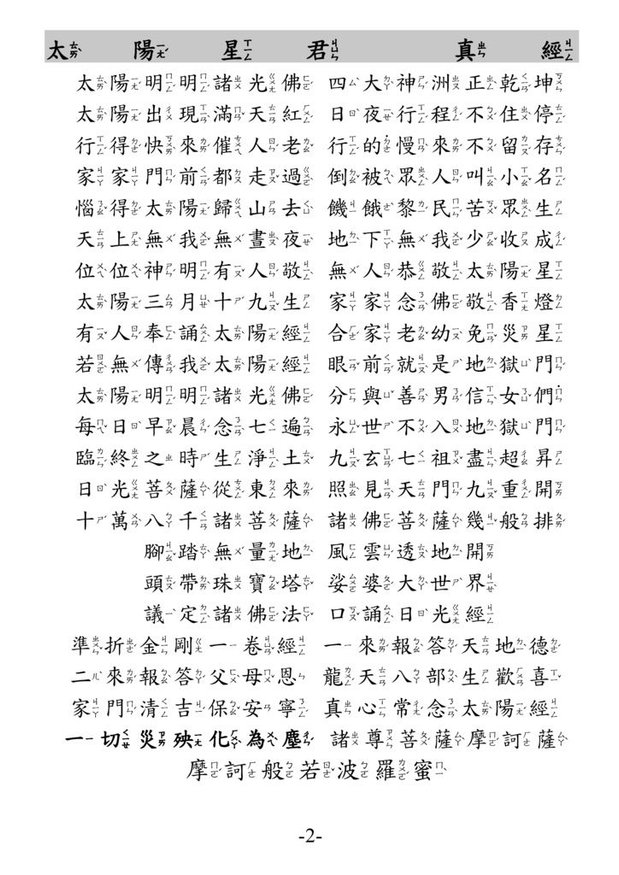 太陽星君真經
太陽明明諸光佛 四大神洲正乾坤
太陽出現滿天紅 日夜行程不住停
行得快來催人老 行的慢來不留存
家家門前都走過 倒被眾人叫小名
惱得太陽歸山去 饑餓黎民苦眾生
天上無我無晝夜 地下無我少收成
位位神明有人敬 無人恭敬太陽星
太陽三月十九生 家家念佛敬香燈
有人奉誦太陽經 合家老幼免災星
若無傳我太陽經 眼前就是地獄門
太陽明明諸光佛 分與善男信女們
每日早晨念七遍 永世不入地獄門
臨終之時生淨土 九玄七祖盡超昇
日光菩薩從東來 照見天門九重開
十萬八千諸菩薩 諸佛菩薩幾般排
腳踏無量地 風雲透地開
頭帶珠寶塔 娑婆大世界
議定諸佛法 口誦日光經
準折金剛一卷經 一來報答天地德
二來報答父母恩 龍天八部生歡喜
家門清吉保安寧 真心常念太陽經
一切災殃化為塵 諸尊菩薩摩訶薩
摩訶般若波羅蜜
-2-